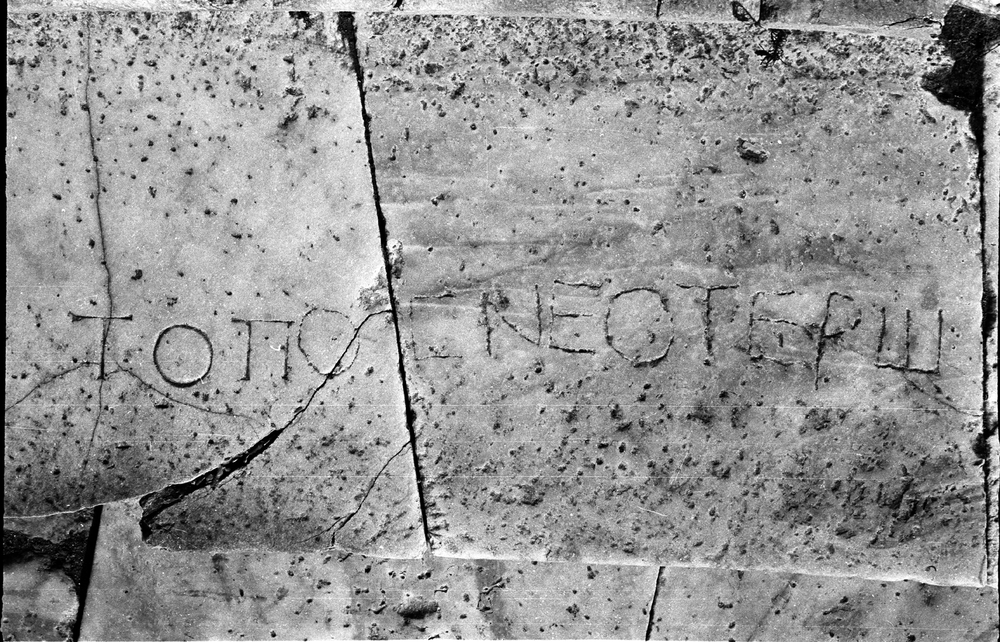 ΤΟΠΟΣ ΝΕΟΤΕΡΩ